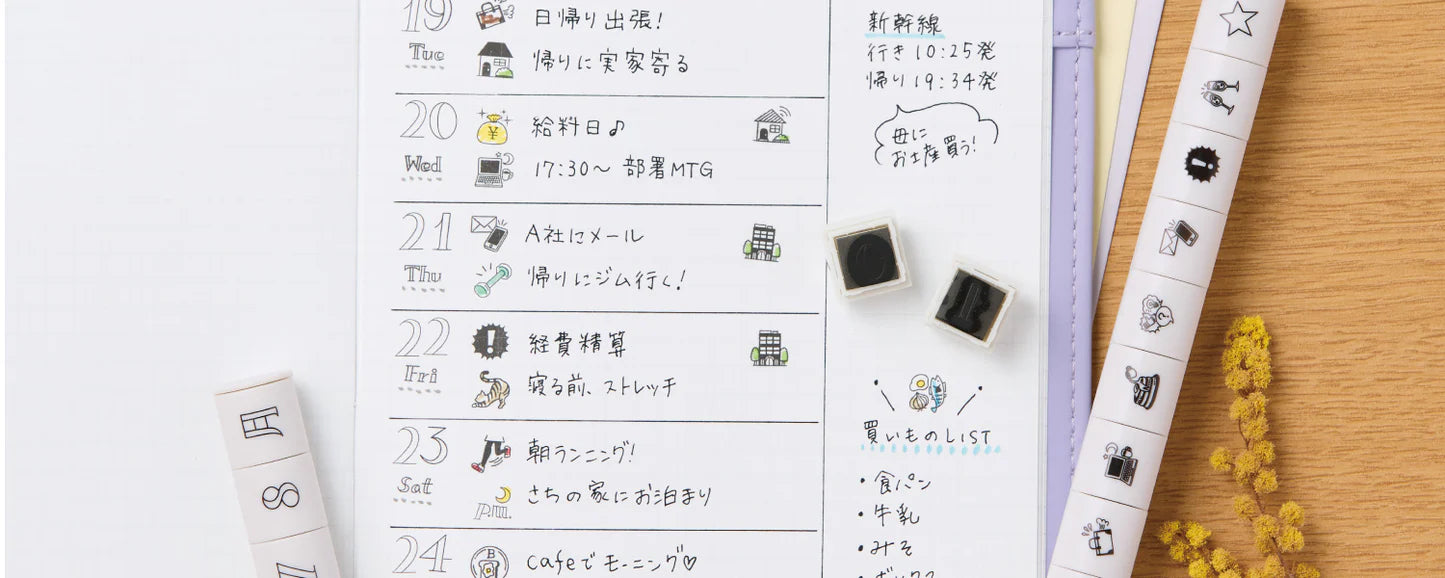 19
Tue
日帰り出張!
帰りに実家寄る
20
Wed
給料日♪
17:30〜 部署MTG
21
Thu
A社にメール
帰りにジム行く!
22
Fri
経費精算
寝る前、ストレッチ
23
Sat
朝ランニング!
P.M.
さちの家にお泊まり
24
B
Cafeでモーニング♡
新幹線
行き 10:25発
帰り 19:34発
母に
お土産買う!
買いものLIST
・食パン
・牛乳
・みそ
月
8